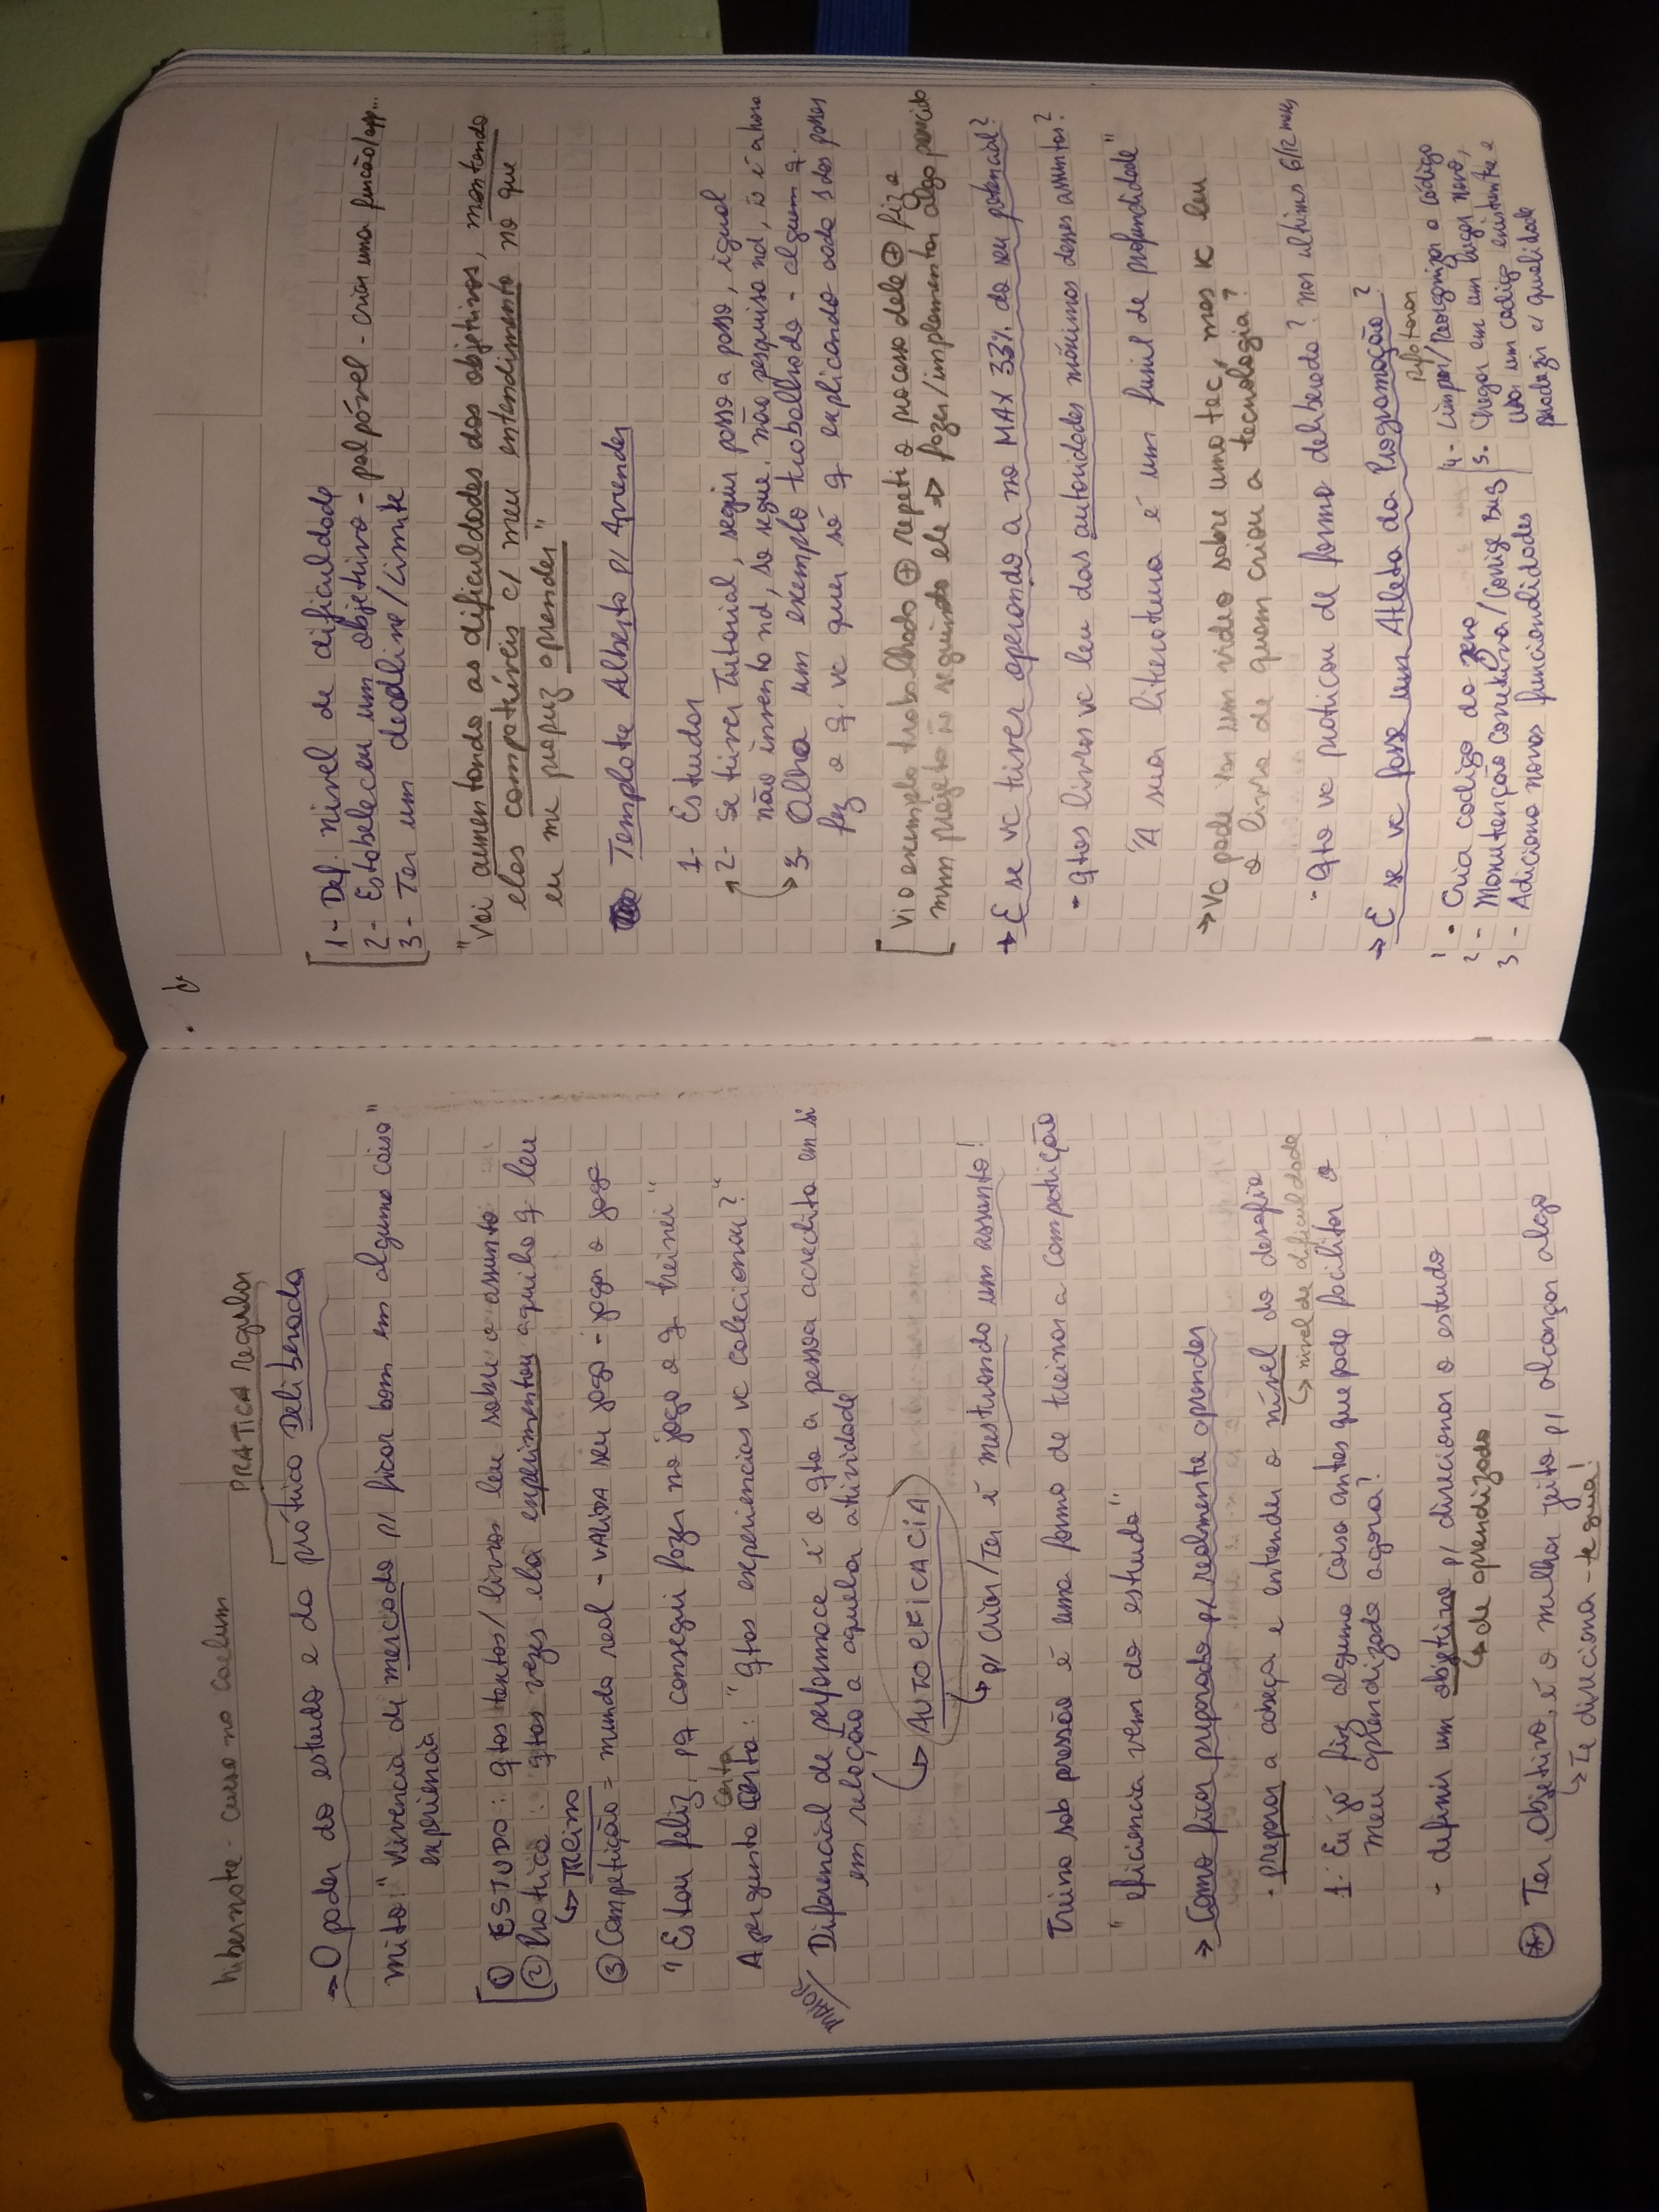 hibernate - curso na caelum
PRATICA Regular
→ O poder do estudo e da prática Deliberada
mito: "vivencia de mercado p/ ficar bom em alguma coisa"
experiencia
① ESTUDO: qtos textos/livros leu sobre o assunto
② Pratica: qtas vezes ela experimentou aquilo q leu
↳ TREINO
③ Competição = mundo real - VALIDA seu jogo - joga o jogo
"Estou feliz pq consegui fazer no jogo o q treinei"
A pergunta certa: "qtas experiencias vc colecionou?"
MAIOR/ Diferencial de performace é o qto a pessoa acredita em si
em relação a aquela atividade
↳ AUTO EFICACIA
↳ p/ criar/Ter é mestrando um assunto!
Treino sob pressão é uma forma de treinar a competição
"eficiencia vem do estudo"
→ Como ficar preparado p/ realmente aprender
- preparar a cabeça e entender o nível do desafio
↳ nivel de dificuldade
1- Eu já fiz alguma coisa antes que pode facilitar o
meu aprendizado agora?
- definir um objetivo p/ direcionar o estudo
↳ de aprendizado
Ter Objetivo, é o melhor jeito p/ alcançar algo
↳ Te direciona - te guia!
1- Def. nivel de dificuldade
2- Estabeleceu um objetivo - palpável - criar uma função/app...
3- Ter um deadline/Limite
"Vai aumentando as dificuldades dos objetivos, montando
elas compatíveis c/ meu entendimento no que
eu me propuz aprender"
Template Alberto p/ Aprender
1- Estudar
2- Se tiver Tutorial, seguir passo a passo, igual
não invento nd, só segue, não pesquiso nd, ñ é a hora
3- Olha um exemplo trabalhado - alguem q.
fez o q. vc quer só q explicando cada 1 dos passos
Vi o exemplo trabalhado ⊕ repeti o processo dele ⊕ fiz o
mesmo projeto ñ seguindo ele ⇒ fazer/implementar algo parecido
→ E se vc tiver operando a no MAX 33% do seu potencial?
- qtos livros vc leu das autoridades máximas desses assuntos?
"A sua literatura é um funil de profundidade"
→ Vc pode ver um video sobre uma tec, mas vc leu
o livro de quem criou a tecnologia?
- qto vc praticou de forma deliberada? nos ultimos 6/12 meses
→ E se vc fosse um Atleta da Programação?
1 - Cria codigo do zero
2 - Manutenção Corretiva/Corrige Bug
3 - Adiciona novas funcionalidades
Refatorar
4- Limpar/Reorganizar o código
5- Chegar em um lugar novo,
ver um codigo existente e
produzir c/ qualidade